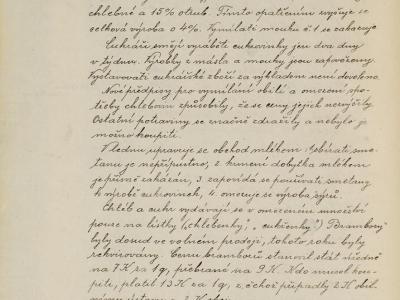 chlebné a 15% otrub. Tímto opatřením zvyšuje se
celková výroba o 4%. Vymílati mouku č. 1 se zakazuje.
Cukráři smějí vyráběti cukrovinky jen dva dny
v týdnu. Výrobky z másla a mouky jsou zapovězeny.
Vystavovati cukrářské zboží za výkladem není dovoleno.
Nové předpisy pro vymílání obilí a omezení spo-
třeby chlebovin způsobily, že se ceny jejich nezvýšily.
Ostatní potraviny se značně zdražily a nebylo je
možno koupiti.
V lednu upravuje se obchod mlékem: 1. Sbírati sme-
tanu je nepřípustno, 2. krmení dobytka mlékem
je přísně zakázán, 3. zapovídá se používati smetany
k výrobě cukrovinek, 4. omezuje se výroba sýrů.
Chléb a cukr vydávají se v omezeném množství
pouze na lístky („chlebenky“, „cukřenky“.) Brambory
byly dosud ve volném prodeji, tohoto roku byly
rekvirovány. Cenu bramborů stanovil stát úředně
na 7 K za 1 q, přebrané na 9 K. Kdo musel kou-
piti, platil 13 K za 1 q, z čehož připadly 2 K obil-